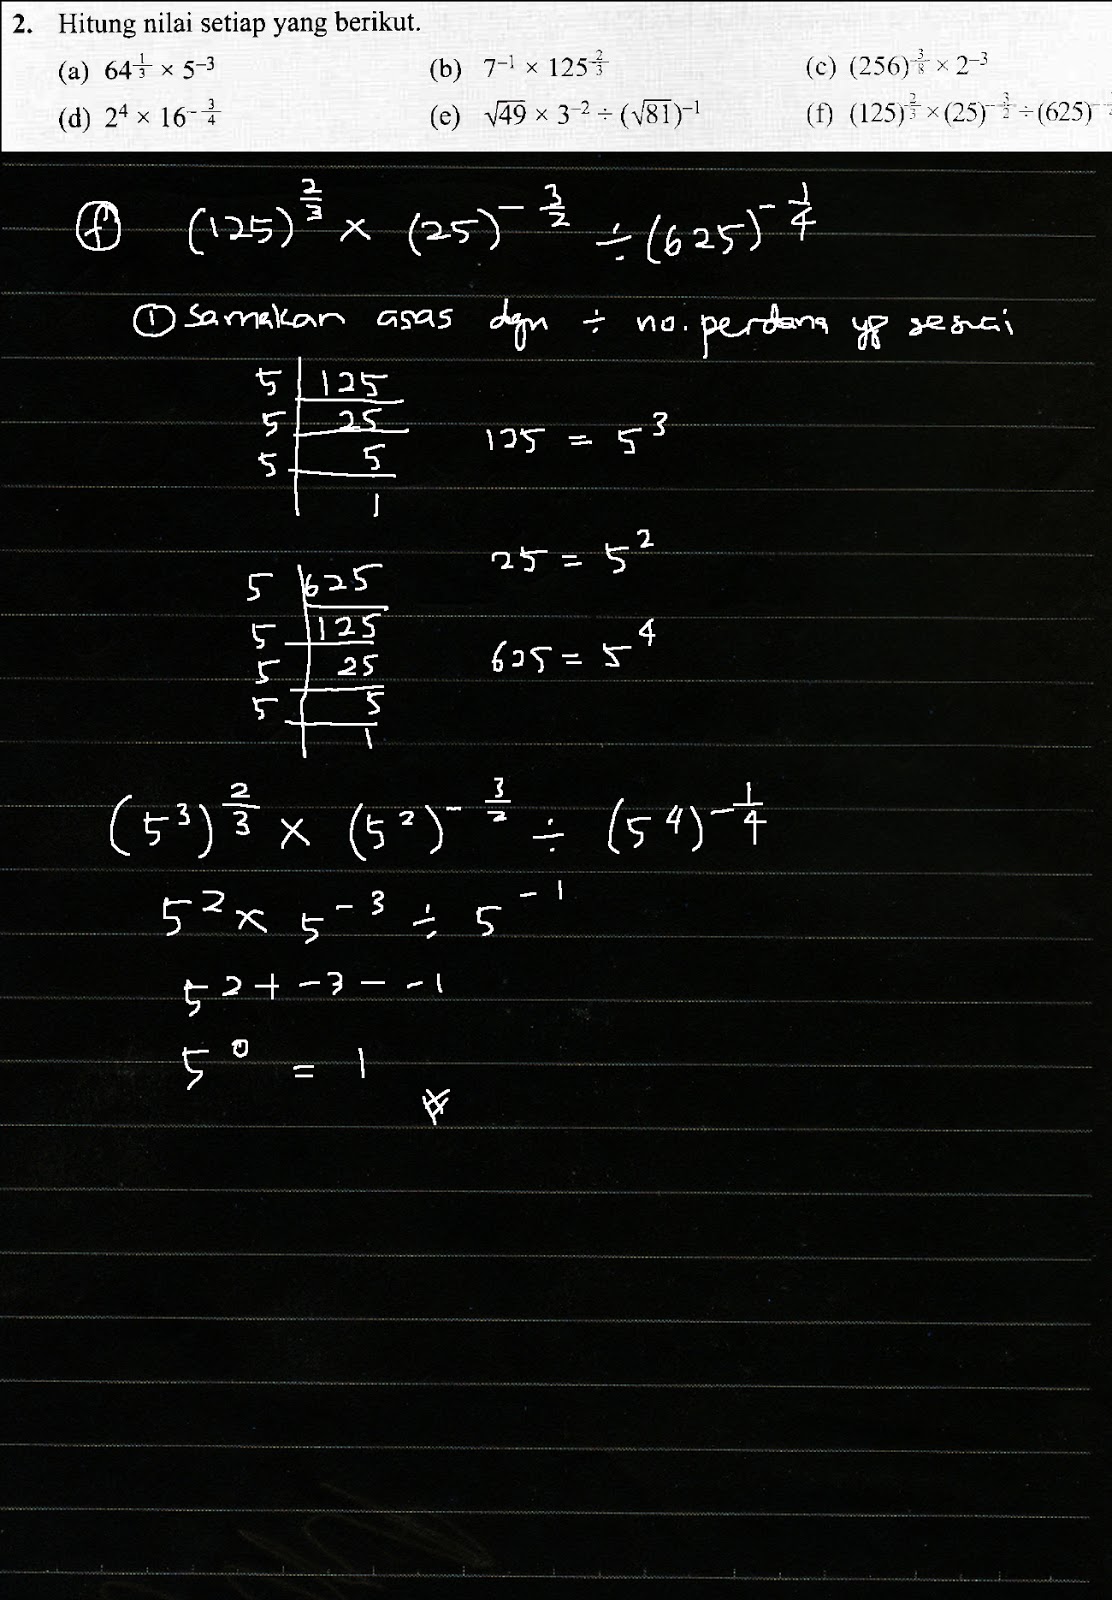 2. Hitung nilai setiap yang berikut.
(a) 64^{1/3} × 5^{-3} (b) 7^{-1} × 125^{2/3} (c) (256)^{3/8} × 2^{-3}
(d) 2^4 × 16^{-3/4} (e) √49 × 3^{-2} ÷ (√81)^{-1} (f) (125)^{2/3} × (25)^{-3/2} ÷ (625)^{-
(f) (125)^{2/3} × (25)^{-3/2} ÷ (625)^{-1/4}
① Samakan asas dgn ÷ no. perdana yg sesuai
5 | 125
5 | 25
5 | 5
1
125 = 5^3
25 = 5^2
5 | 625
5 | 125
5 | 25
5 | 5
1
625 = 5^4
(5^3)^{2/3} × (5^2)^{-3/2} ÷ (5^4)^{-1/4}
5^2 × 5^{-3} ÷ 5^{-1}
5^{2 + -3 - -1}
5^0 = 1